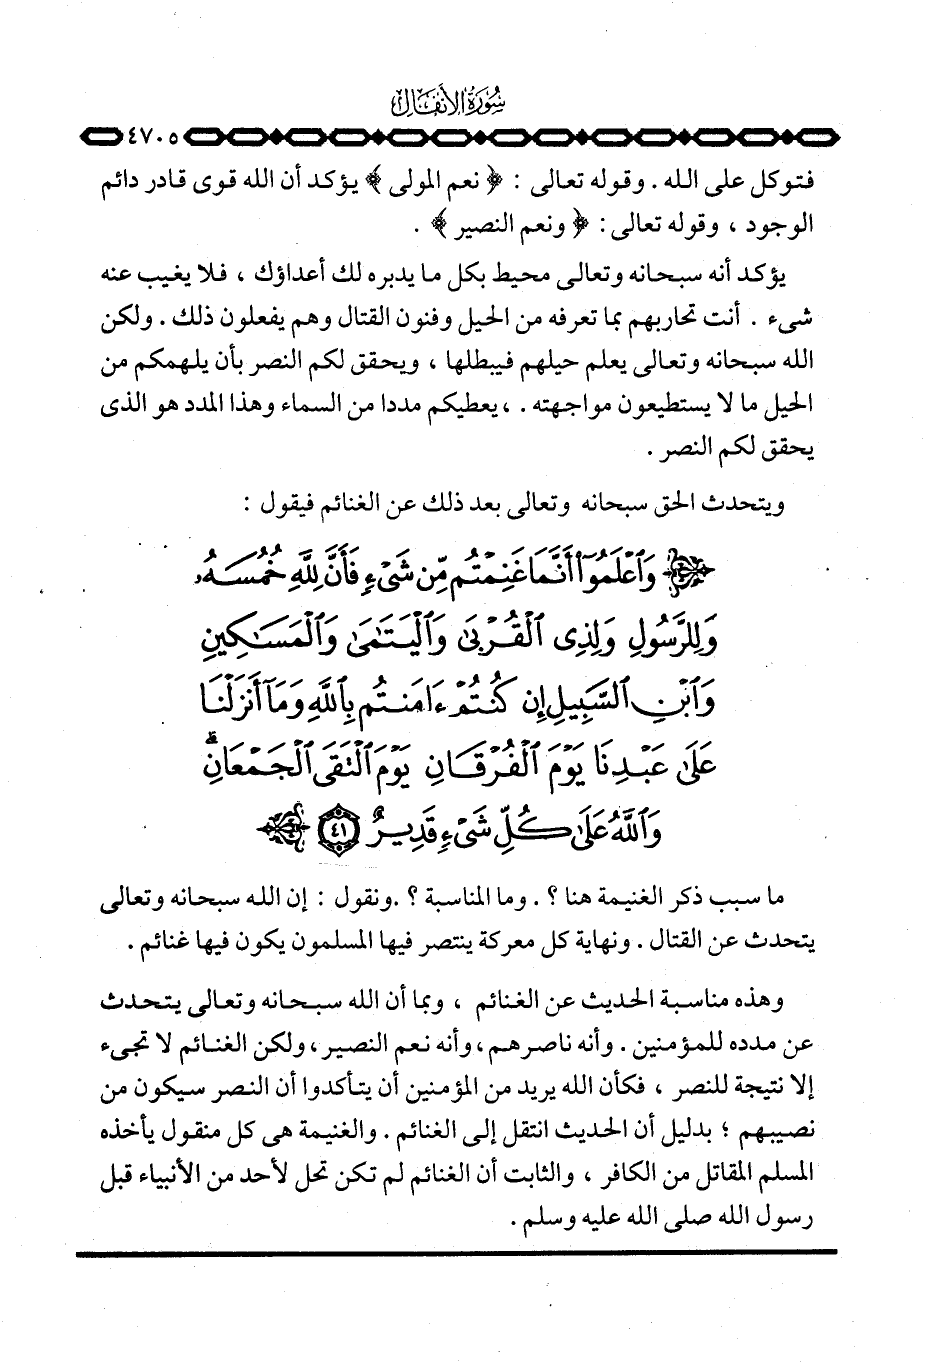 سُورَةُ الأَنفَالِ
٤٧٠٥
فتوكل على الله . وقوله تعالى : ﴿ نعم المولى ﴾ يؤكد أن الله قوى قادر دائم
الوجود ، وقوله تعالى : ﴿ ونعم النصير ﴾ .
يؤكد أنه سبحانه وتعالى محيط بكل ما يدبره لك أعداؤك ، فلا يغيب عنه
شىء . أنت تحاربهم بما تعرفه من الحيل وفنون القتال وهم يفعلون ذلك . ولكن
الله سبحانه وتعالى يعلم حيلهم فيبطلها ، ويحقق لكم النصر بأن يلهمكم من
الحيل ما لا يستطيعون مواجهته . ، يعطيكم مددا من السماء وهذا المدد هو الذى
يحقق لكم النصر .
ويتحدث الحق سبحانه وتعالى بعد ذلك عن الغنائم فيقول :
وَٱعْلَمُوٓا۟ أَنَّمَا غَنِمْتُم مِّن شَىْءٍ فَأَنَّ لِلَّهِ خُمُسَهُۥ
وَلِلرَّسُولِ وَلِذِى ٱلْقُرْبَىٰ وَٱلْيَتَٰمَىٰ وَٱلْمَسَٰكِينِ
وَٱبْنِ ٱلسَّبِيلِ إِن كُنتُمْ ءَامَنتُم بِٱللَّهِ وَمَآ أَنزَلْنَا
عَلَىٰ عَبْدِنَا يَوْمَ ٱلْفُرْقَانِ يَوْمَ ٱلْتَقَى ٱلْجَمْعَانِ ۗ
وَٱللَّهُ عَلَىٰ كُلِّ شَىْءٍ قَدِيرٌ ٤١
ما سبب ذكر الغنيمة هنا ؟ . وما المناسبة ؟ .ونقول : إن الله سبحانه وتعالى
يتحدث عن القتال . ونهاية كل معركة ينتصر فيها المسلمون يكون فيها غنائم .
وهذه مناسبة الحديث عن الغنائم ، وبما أن الله سبحانه وتعالى يتحدث
عن مدده للمؤمنين . وأنه ناصرهم ، وأنه نعم النصير ، ولكن الغنائم لا تجىء
إلا نتيجة للنصر ، فكأن الله يريد من المؤمنين أن يتأكدوا أن النصر سيكون من
نصيبهم ؛ بدليل أن الحديث انتقل إلى الغنائم . والغنيمة هى كل منقول يأخذه
المسلم المقاتل من الكافر ، والثابت أن الغنائم لم تكن تحل لأحد من الأنبياء قبل
رسول الله صلى الله عليه وسلم .